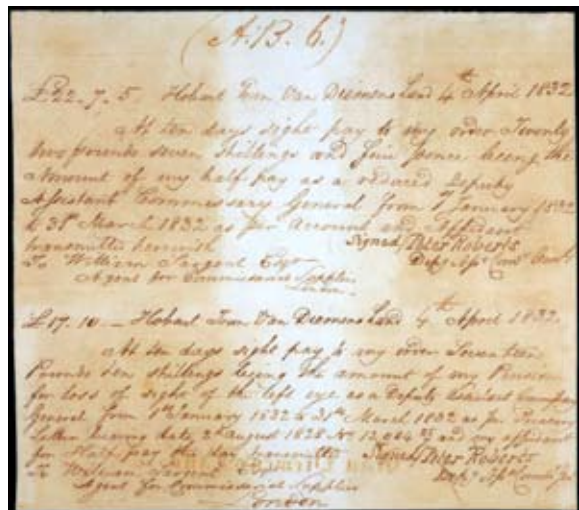 (A. B. 6.)
£22. 7. 5. Hobart Town Van Diemens Land 4th April 1832
At ten days sight pay to my order Twenty
two pounds seven shillings and five pence being the
Amount of my half pay as a reduced Deputy
Assistant Commissary General from 1 January 1832
to 31st March 1832 as per Account and Affidavit
transmitted herewith Signed, Peter Roberts
To William Sargent Esqr Depy Asst Comy Genl
Agent for Commissariat Supplies
London
£17. 10 – Hobart Town Van Diemens Land 4th April 1832.
At ten days sight pay to my order Seventeen
Pounds ten shillings being the amount of my Pension
for loss of sight of the left eye as a Deputy Assistant Commissary
General from 1st January 1832 to 31st March 1832 as per Treasury
Letter bearing date 2d August 1828 No and my affidavit
for Half pay this day transmitted Signed, Peter Roberts
To William Sargent Esqr Depy Asst Comy Genl
Agent for Commissariat Supplies
London